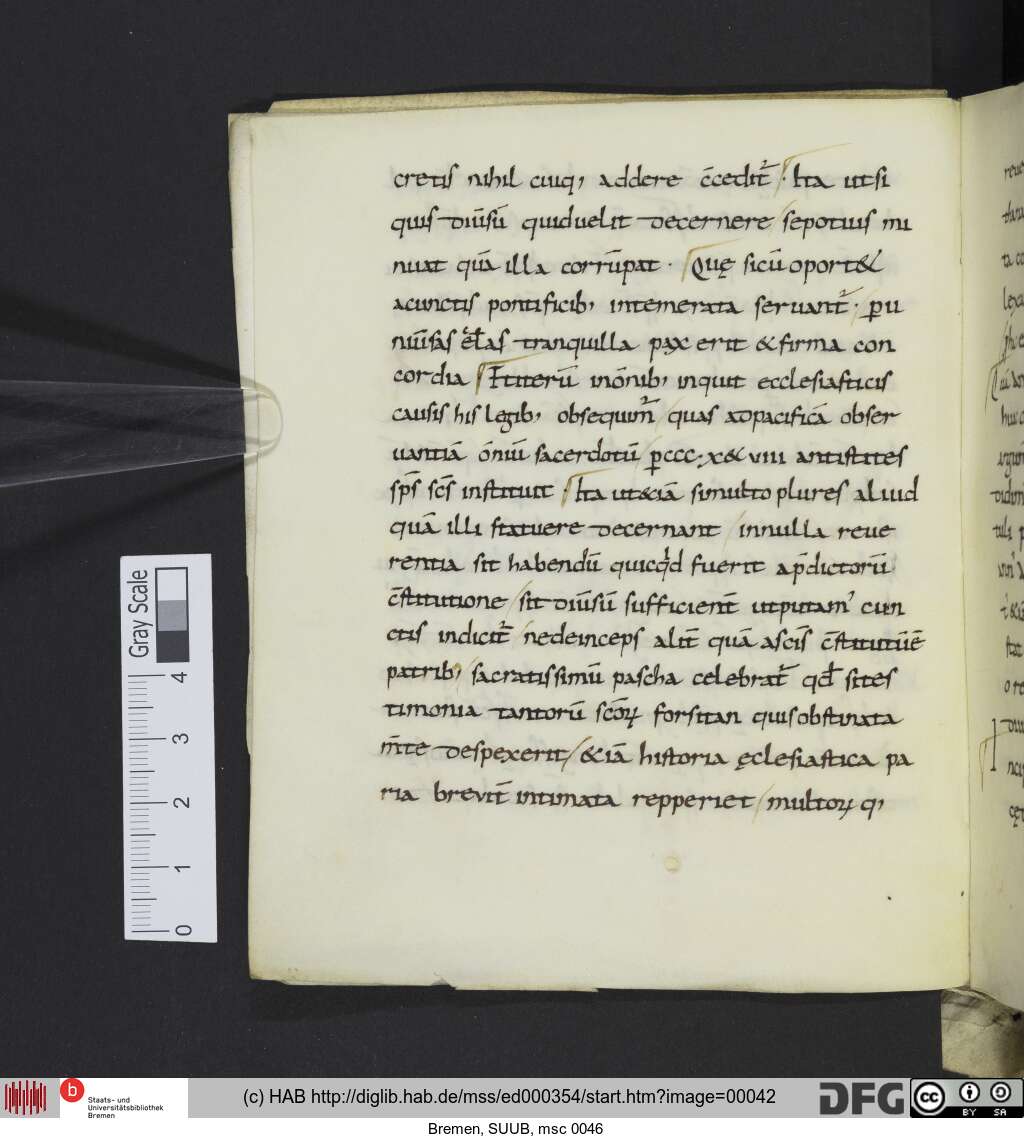 cretis nihil cuiq; addere c̄cedit̄. Ita utsi
quis diu̅su̅ quiduelit decernere sepotius mi
nuat qua̅ illa corru̅pat. Quę sicu̅ oport&
acunctis pontificib; intemerata seruant̄. ꝑ u
niu̅sas ęc̄l̄as tranquilla pax erit & firma con
cordia Et iteru̅ ino̅nib; inquit ecclesiasticis
causis his legib; obsequim̄ quas adpacifica̅ obser
uantia̅ o̅niu̅ sacerdotu̅ ꝑ ccc. x & uiii antistites
sp̄s sc̄s instituit. Ita ut&ia̅ simulto plures aliud
qua̅ illi statuere decernant innulla reue
rentia sit habendu̅ quicq̇d fuerit ap̄dictoru̅
c̄stitutione sit diu̅su̅ sufficient̄ utputam' cun
ctis indicit̄ nedeinceps alit̄ qua̅ asc̄is c̄stitutu̅ e̅
patrib; sacratissimu̅ pascha celebrat̄ qđ sites
timonia tantoru̅ sc̄oꝝ forsitan quis obstinata
m̄te despexerit &ia̅ historia ęclesiastica pa
ria brevit̄ intimata repperiet multoꝝ q;
Gray Scale
4
3
2
1
0
b
Staats- und
Universitätsbibliothek
Bremen
(c) HAB http://diglib.hab.de/mss/ed000354/start.htm?image=00042
DFG
cc
BY SA
Bremen, SUUB, msc 0046